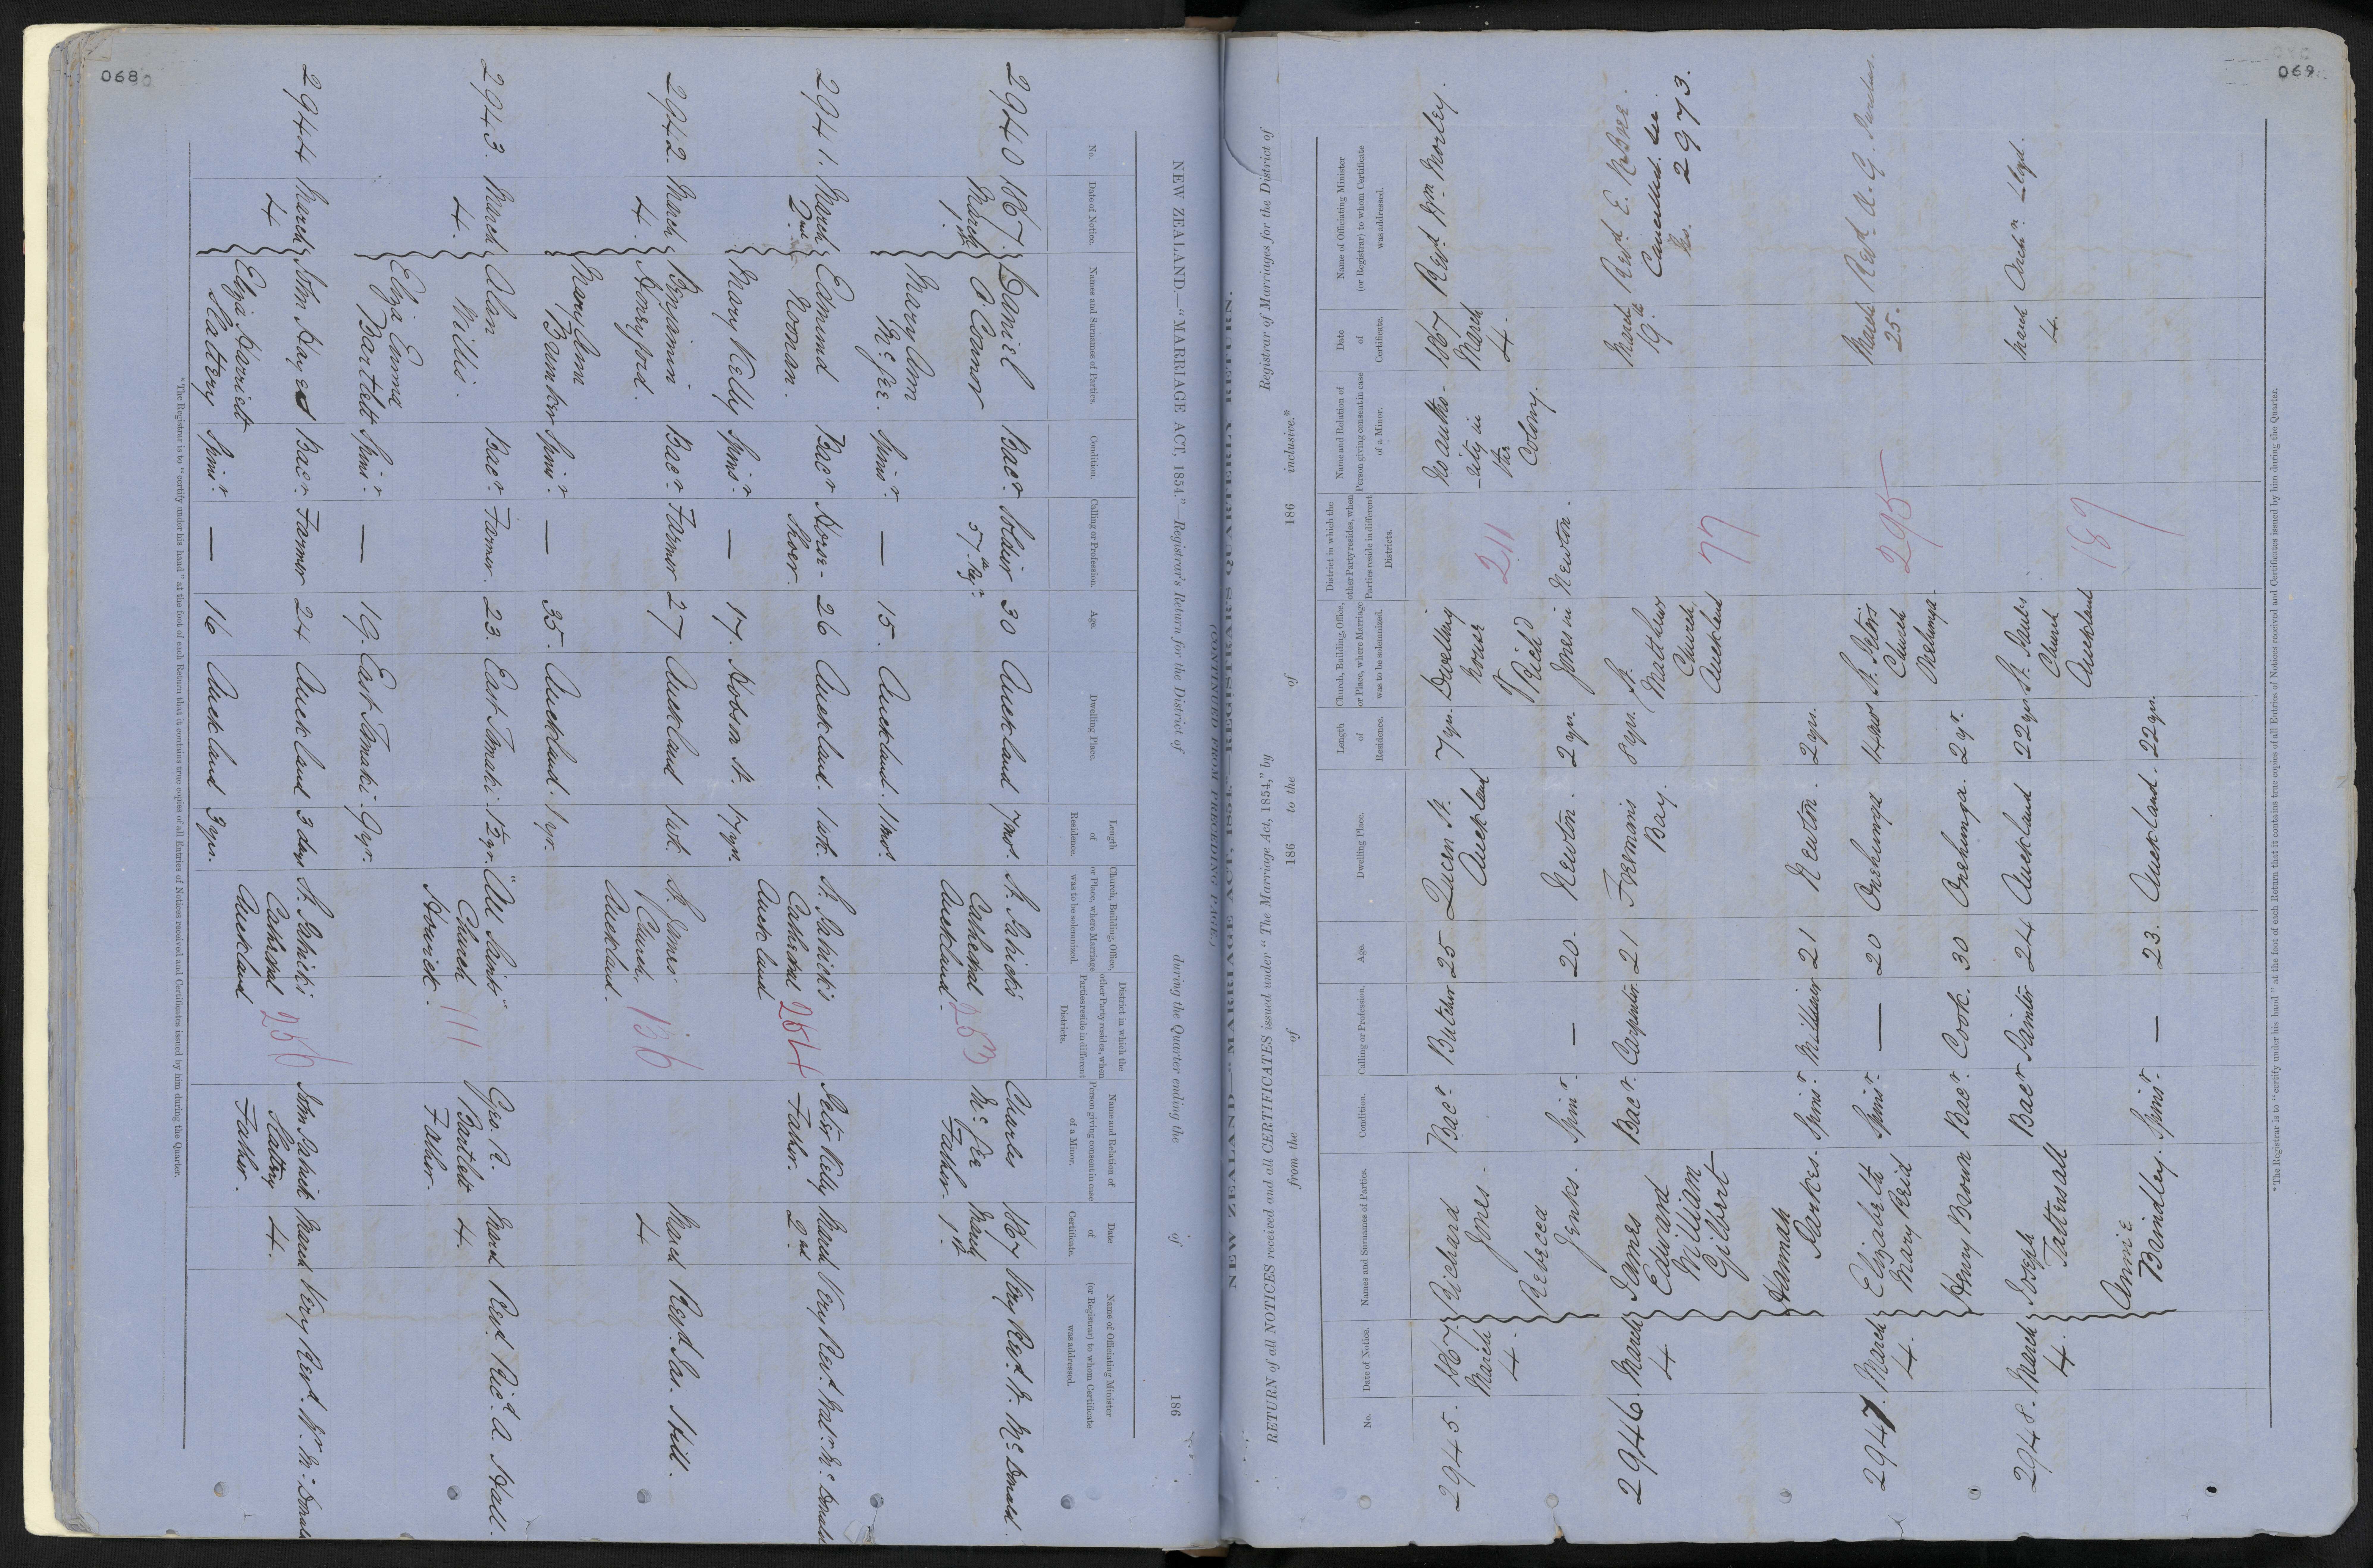 068
NEW ZEALAND.—"MARRIAGE ACT, 1854."—Registrar's Return for the District of during the Quarter ending the of 186
No.
Date of Notice.
Names and Surnames of Parties.
Condition.
Calling or Profession.
Age.
Dwelling Place.
Length of Residence.
Church, Building, Office, or Place, where Marriage was to be solemnized.
District in which the other Party resides, when Parties reside in different Districts.
Name and Relation of Person giving consent in case of a Minor.
Date of Certificate.
Name of Officiating Minister (or Registrar) to whom Certificate was addressed.
2940 1867. Daniel Bacr. Soldier 30 Auckland 7 mos. St. Patrick's Charles 1867 Very Revd. W. McDonald.
March O'Connor 57th Regt. Cathedral 253 McGee March
1st. Mary Ann Auckland. Father. 1st.
McGee. Spinr. — 15. Auckland. 11 mos.
2941. March Edmund Bacr Horse- 26 Auckland. 1 wk. St. Patrick's Peter Kelly March Very Revd. Walr. McDonald
2nd Noonan. Shoer. Cathedral 254 Father. 2nd
Auckland
Mary Kelly Spinr. — 17. Hobson St. 17 yrs.
2942. March Benjamin Bacr. Farmer 27 Auckland 1 wk. St. James' March Revd. Jas. Hill.
4. Henry Ford. Church. 136 4
Auckland.
Mary Ann
Bamber Spinr — 35. Auckland. 1 yr.
2943. March Alan Bacr. Farmer. 23. East Tamaki. 1½ yr. "All Saints" Geo. R. March Revd. Richd. A. Hall.
4. Willis. Church 111 Bartlett 4.
Howick. Father.
Eliza Emma
Bartlett Spinr. — 19. East Tamaki. 9 yr.
2944 March John Hayes Bacr. Farmer 24 Auckland 3 days St. Patrick's John Patrick March Very Revd. Wr. McDonald
4 Cathedral 256 Slattery 4.
Eliza Harriett Auckland Father.
Slattery Spinr. — 16 Auckland 3 yrs.
*The Registrar is to "certify under his hand" at the foot of each Return that it contains true copies of all Entries of Notices received and Certificates issued by him during the Quarter.
069
NEW ZEALAND—"MARRIAGE ACT, 1854."—REGISTRAR'S QUARTERLY RETURN.
(CONTINUED FROM PRECEDING PAGE.)
RETURN of all NOTICES received and all CERTIFICATES issued under "The Marriage Act, 1854," by Registrar of Marriages for the District of
from the of 186 to the of 186 inclusive.*
No.
Date of Notice.
Names and Surnames of Parties.
Condition.
Calling or Profession.
Age.
Dwelling Place.
Length of Residence.
Church, Building, Office, or Place, where Marriage was to be solemnized.
District in which the other Party resides, when Parties reside in different Districts.
Name and Relation of Person giving consent in case of a Minor.
Date of Certificate.
Name of Officiating Minister (or Registrar) to whom Certificate was addressed.
2945. 1867. Richard Bacr. Butcher 25 Queen St. 7 yrs. Dwelling No autho- 1867 Revd. Wm. Morley.
March Jones. Auckland house 211 -rity in March
4. Richd the 4.
Rebecca Jones in Newton. Colony.
Jenks. Spinr. — 20. Newton. 2 yrs.
2946. March James Bacr. Carpenter. 21 Freemans 8 yrs. St. March Revd. E.
4 Edward Bay. Matthew 19th Cancelled. See
William Church 77 No. 2973.
Gilbert Auckland
Hannah
Parkes. Spinr. Milliner 21 Newton. 2 yrs.
2947. March Elizabeth Spinr. — 20 Onehunga St. Peters 295 March Revd. A. G. Purchas.
4. Mary Reid Church 25.
Onehunga
Henry Brown Bacr. Cook. 30 Onehunga. 2 yr.
2948. March Joseph Bacr Painter 24 Auckland 22 yrs St. Pauls March Archn. Lloyd.
4. Tattersall Church 189 4.
Auckland
Annie
Brindley. Spinr. — 23. Auckland. 22 yrs.
*The Registrar is to "certify under his hand" at the foot of each Return that it contains true copies of all Entries of Notices received and Certificates issued by him during the Quarter.